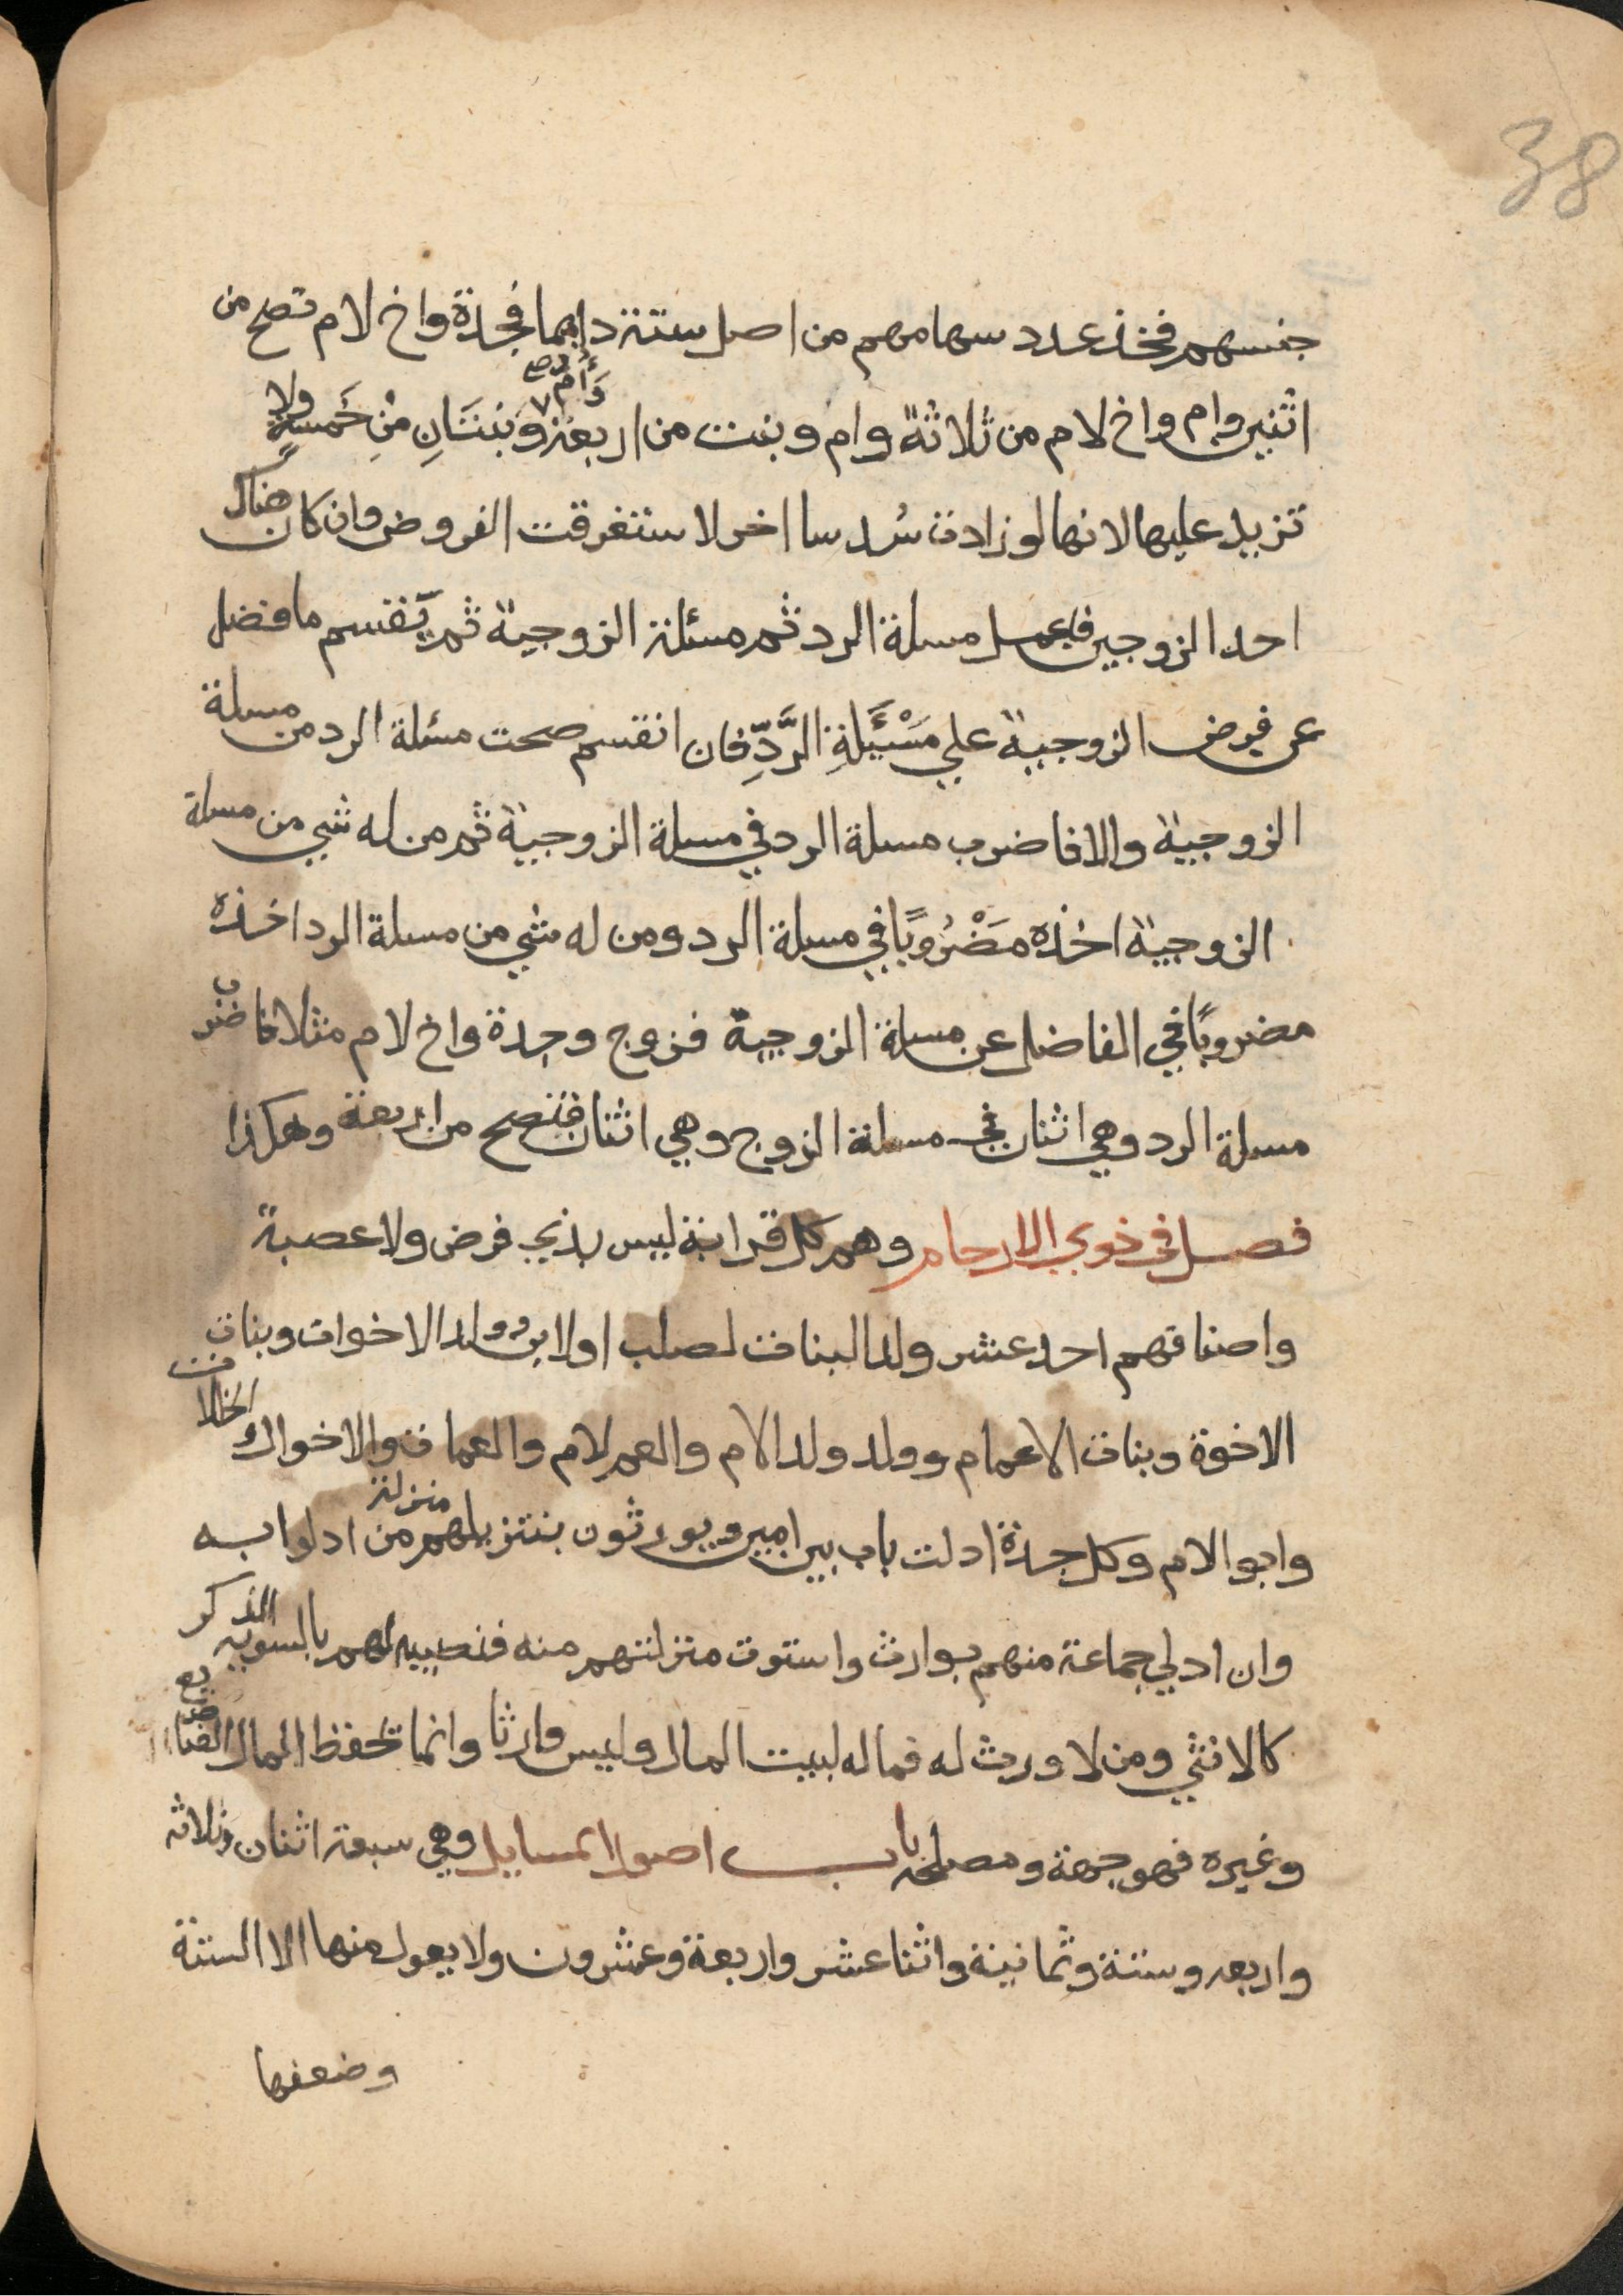 38
جنسهم فخذ عدد سهامهم من اصل ستة دايما فجدة واخ لام تصح من
اثنين وام واخ لام من ثلاثة وام وبنت من اربعة وَأُم صح وَبِنتَانِ مِنْ خَمسةٍ ولا
تزيد عليها لانها لو زادت سُدسا اخر لاستغرقت الفروض وان كان هناك
احد الزوجين فاعمل مسلة الرد ثم مسئلة الزوجية ثم يّقسم ما فضل
عن فرض الزوجية علي مَسْئَلَةِ الرَّدِّ فان انقسم صحت مسئلة الرد من مسلة
الزوجية والا فاضرب مسلة الرد في مسلة الزوجية ثم من له شي من مسلة
الزوجية اخذه مَضْرُوبًا في مسلة الرد ومن له شي من مسلة الرد اخذه
مضروبًا في الفاضل عن مسلة الزوجية فزوج وجدة واخ لام مثلا فاضرب
مسلة الرد وهي اثنان في مسلة الزوج وهي اثنان فتصح من اربعة وهكذا
فصل في ذوي الارحام وهم كل قرابة ليس بذي فرض ولا عصبة
واصنافهم احد عشر ولد البنات لصلب او لابن وولد الاخوات وبنات
الاخوة وبنات الاعمام وولد ولد الام والعم لام والعمات والاخوال والخالات
وابو الام وكل جدة ادلت باب بين امين ويورثون بتنزيلهم منزلة من ادلوا به
وان ادلي جماعة منهم بوارث واستوت منزلتهم منه فنصيبه لهم بالسوية الذكر
كالانثي ومن لا ورث له فماله لبيت المال وليس وارثا وانما تحفظ المال الضايع
وغيره فهو جهة ومصلحة باب اصول المسايل وهي سبعة اثنان وثلاثه
واربعه وستة وثمانية واثنا عشر واربعة وعشرون ولا يعول منها الا الستة
وضعفها